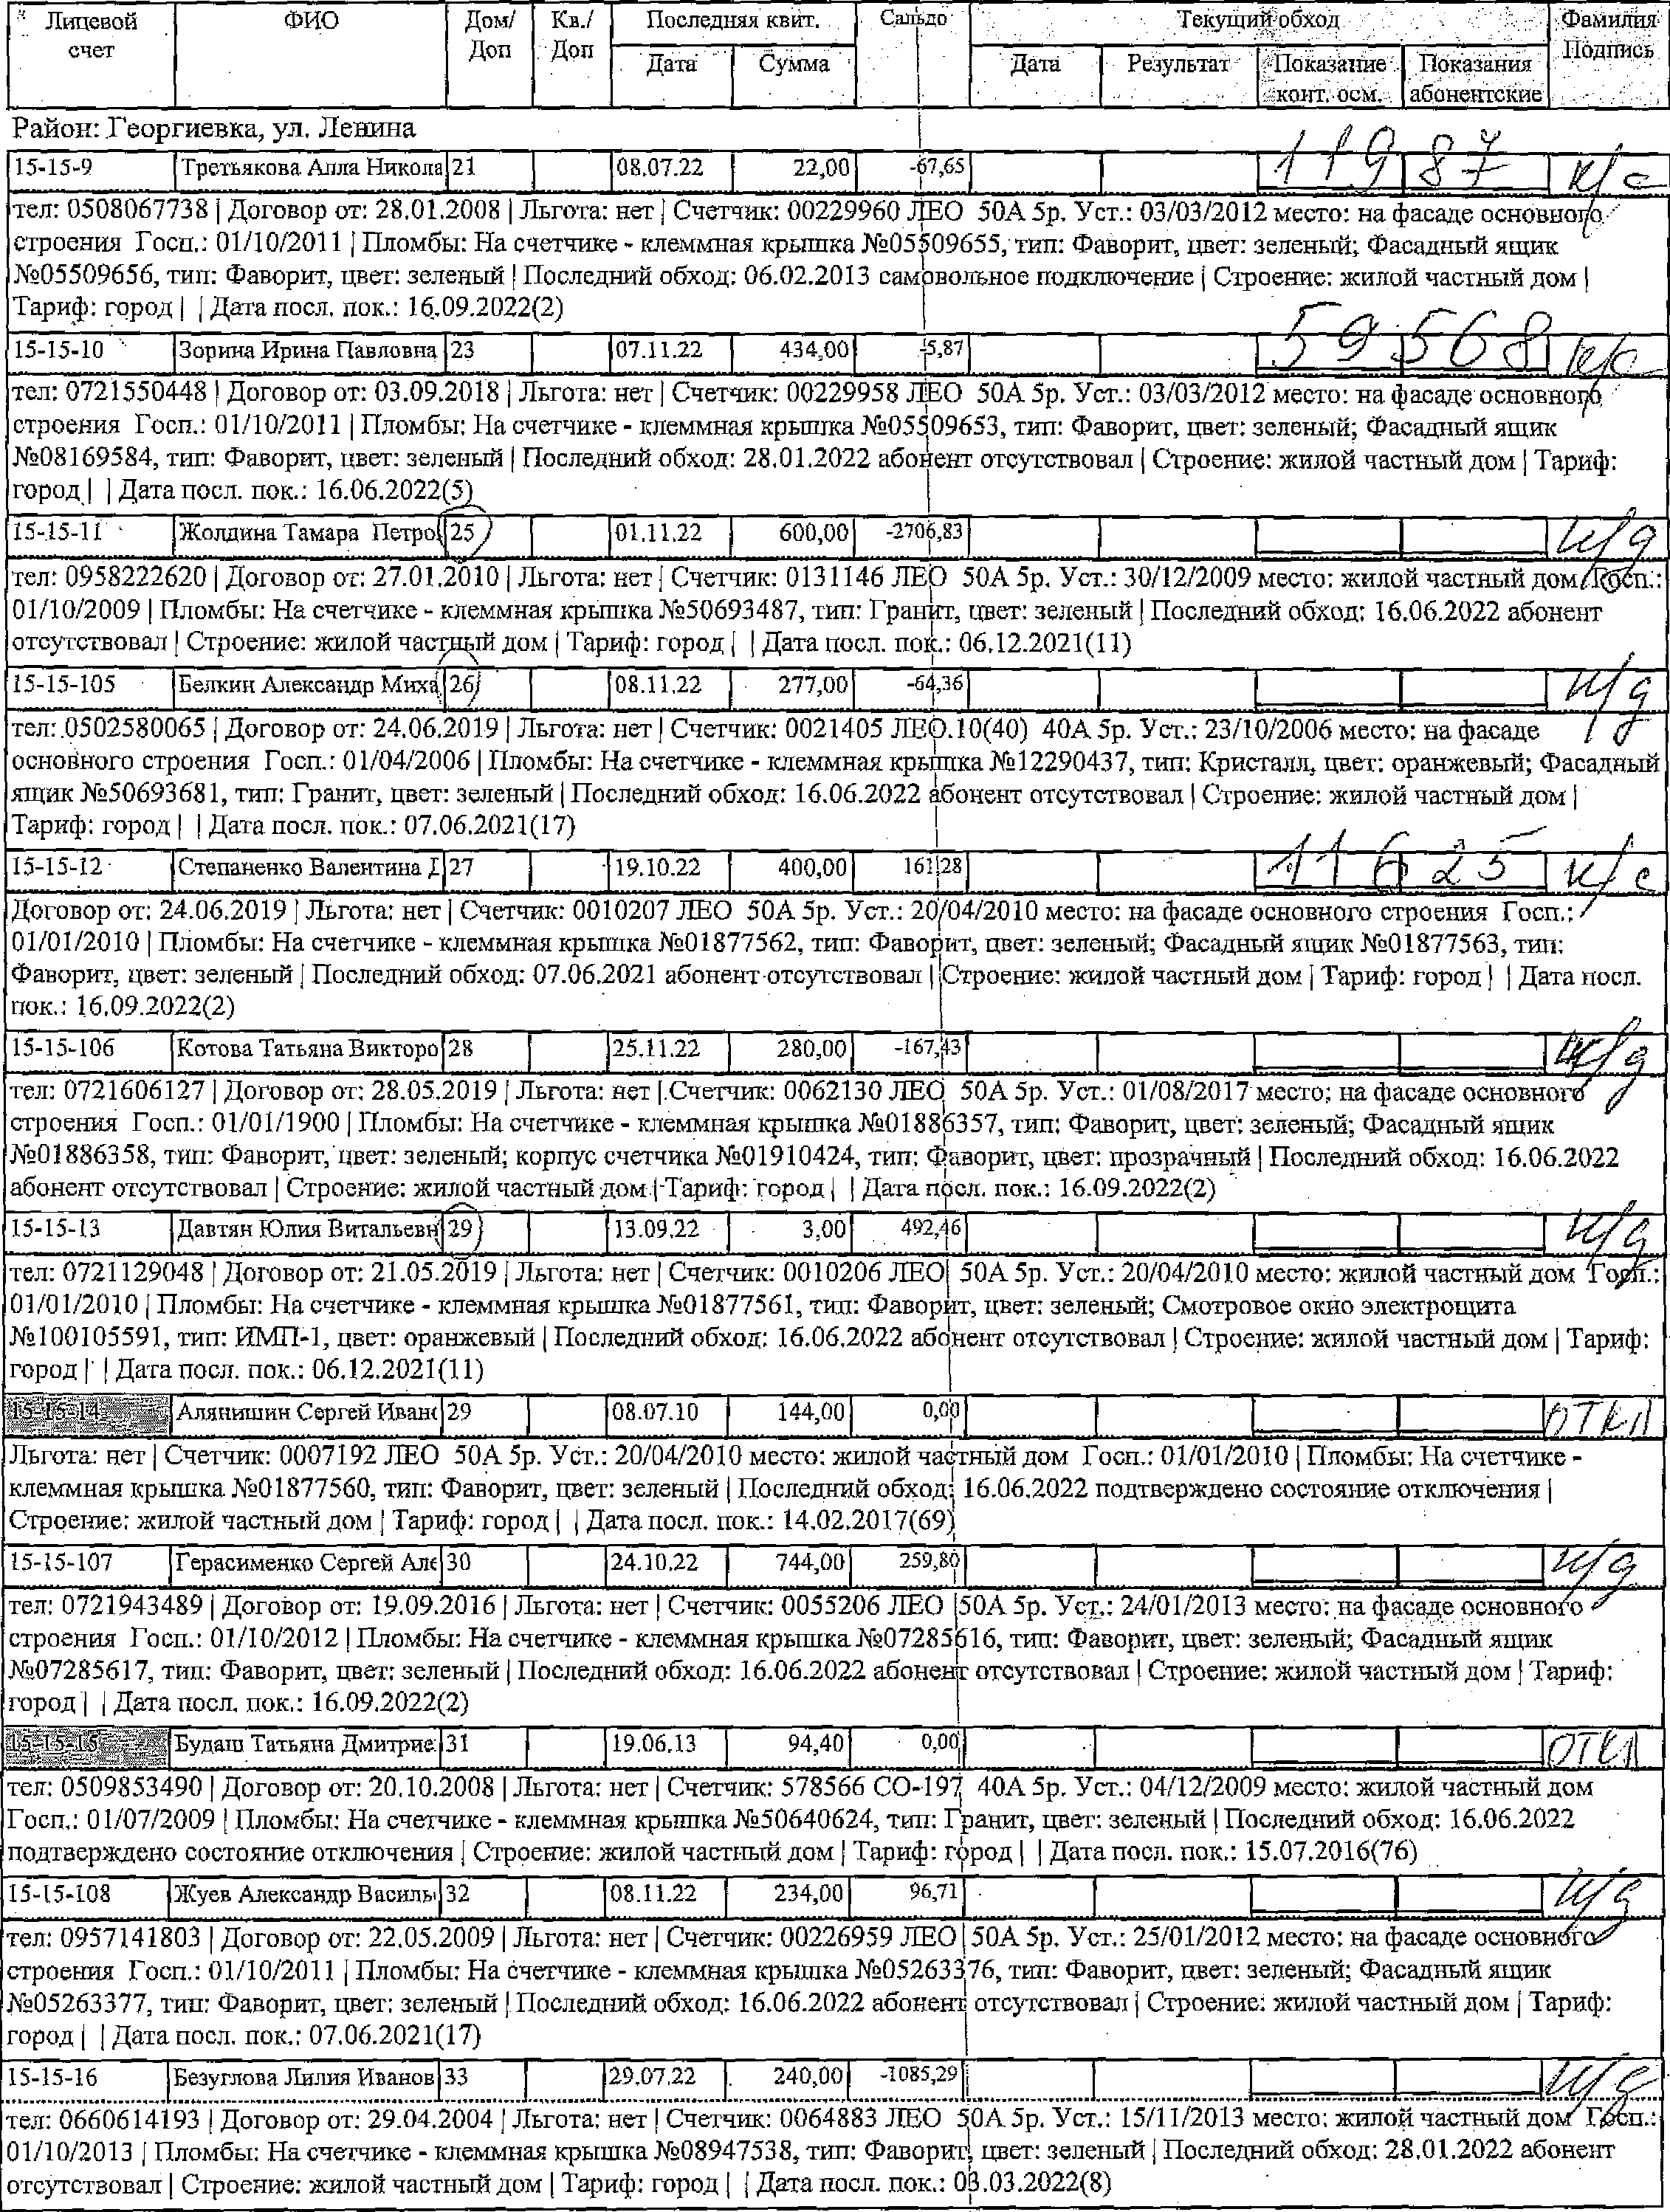 Лицевой счет ФИО Дом/Доп Кв./Доп Последняя квит. Сальдо Текущий обход Фамилия Подпись
Дата Сумма Дата Результат Показание конт. осм. Показания абонентские
Район: Георгиевка, ул. Ленина
15-15-9 Третьякова Алла Никола 21 08.07.22 22,00 -67,65 11987 к/с
тел: 0508067738 | Договор от: 28.01.2008 | Льгота: нет | Счетчик: 00229960 ЛЕО 50А 5р. Уст.: 03/03/2012 место: на фасаде основного
строения Госп.: 01/10/2011 | Пломбы: На счетчике - клеммная крышка №05509655, тип: Фаворит, цвет: зеленый; Фасадный ящик
№05509656, тип: Фаворит, цвет: зеленый | Последний обход: 06.02.2013 самовольное подключение | Строение: жилой частный дом |
Тариф: город | | Дата посл. пок.: 16.09.2022(2)
15-15-10 Зорина Ирина Павловна 23 07.11.22 434,00 -5,87 59568 к/с
тел: 0721550448 | Договор от: 03.09.2018 | Льгота: нет | Счетчик: 00229958 ЛЕО 50А 5р. Уст.: 03/03/2012 место: на фасаде основного
строения Госп.: 01/10/2011 | Пломбы: На счетчике - клеммная крышка №05509653, тип: Фаворит, цвет: зеленый; Фасадный ящик
№08169584, тип: Фаворит, цвет: зеленый | Последний обход: 28.01.2022 абонент отсутствовал | Строение: жилой частный дом | Тариф:
город | | Дата посл. пок.: 16.06.2022(5)
15-15-11 Жолдина Тамара Петро 25 01.11.22 600,00 -2706,83 н/д
тел: 0958222620 | Договор от: 27.01.2010 | Льгота: нет | Счетчик: 0131146 ЛЕО 50А 5р. Уст.: 30/12/2009 место: жилой частный дом Госп.:
01/10/2009 | Пломбы: На счетчике - клеммная крышка №50693487, тип: Гранит, цвет: зеленый | Последний обход: 16.06.2022 абонент
отсутствовал | Строение: жилой частный дом | Тариф: город | | Дата посл. пок.: 06.12.2021(11)
15-15-105 Белкин Александр Миха 26 08.11.22 277,00 -64,36 н/д
тел: 0502580065 | Договор от: 24.06.2019 | Льгота: нет | Счетчик: 0021405 ЛЕО.10(40) 40А 5р. Уст.: 23/10/2006 место: на фасаде
основного строения Госп.: 01/04/2006 | Пломбы: На счетчике - клеммная крышка №12290437, тип: Кристалл, цвет: оранжевый; Фасадный
ящик №50693681, тип: Гранит, цвет: зеленый | Последний обход: 16.06.2022 абонент отсутствовал | Строение: жилой частный дом |
Тариф: город | | Дата посл. пок.: 07.06.2021(17)
15-15-12 Степаненко Валентина Д 27 19.10.22 400,00 161,28 11625 к/с
Договор от: 24.06.2019 | Льгота: нет | Счетчик: 0010207 ЛЕО 50А 5р. Уст.: 20/04/2010 место: на фасаде основного строения Госп.:
01/01/2010 | Пломбы: На счетчике - клеммная крышка №01877562, тип: Фаворит, цвет: зеленый; Фасадный ящик №01877563, тип:
Фаворит, цвет: зеленый | Последний обход: 07.06.2021 абонент отсутствовал | Строение: жилой частный дом | Тариф: город | | Дата посл.
пок.: 16.09.2022(2)
15-15-106 Котова Татьяна Викторо 28 25.11.22 280,00 -167,43 н/д
тел: 0721606127 | Договор от: 28.05.2019 | Льгота: нет | Счетчик: 0062130 ЛЕО 50А 5р. Уст.: 01/08/2017 место: на фасаде основного
строения Госп.: 01/01/1900 | Пломбы: На счетчике - клеммная крышка №01886357, тип: Фаворит, цвет: зеленый; Фасадный ящик
№01886358, тип: Фаворит, цвет: зеленый; корпус счетчика №01910424, тип: Фаворит, цвет: прозрачный | Последний обход: 16.06.2022
абонент отсутствовал | Строение: жилой частный дом | Тариф: город | | Дата посл. пок.: 16.09.2022(2)
15-15-13 Давтян Юлия Витальевн 29 13.09.22 3,00 492,46 н/д
тел: 0721129048 | Договор от: 21.05.2019 | Льгота: нет | Счетчик: 0010206 ЛЕО 50А 5р. Уст.: 20/04/2010 место: жилой частный дом Госп.:
01/01/2010 | Пломбы: На счетчике - клеммная крышка №01877561, тип: Фаворит, цвет: зеленый; Смотровое окно электрощита
№100105591, тип: ИМП-1, цвет: оранжевый | Последний обход: 16.06.2022 абонент отсутствовал | Строение: жилой частный дом | Тариф:
город | | Дата посл. пок.: 06.12.2021(11)
15-15-14 Алянишин Сергей Иван 29 08.07.10 144,00 0,00 откл
Льгота: нет | Счетчик: 0007192 ЛЕО 50А 5р. Уст.: 20/04/2010 место: жилой частный дом Госп.: 01/01/2010 | Пломбы: На счетчике -
клеммная крышка №01877560, тип: Фаворит, цвет: зеленый | Последний обход: 16.06.2022 подтверждено состояние отключения |
Строение: жилой частный дом | Тариф: город | | Дата посл. пок.: 14.02.2017(69)
15-15-107 Герасименко Сергей Але 30 24.10.22 744,00 259,80 н/д
тел: 0721943489 | Договор от: 19.09.2016 | Льгота: нет | Счетчик: 0055206 ЛЕО 50А 5р. Уст.: 24/01/2013 место: на фасаде основного
строения Госп.: 01/10/2012 | Пломбы: На счетчике - клеммная крышка №07285616, тип: Фаворит, цвет: зеленый; Фасадный ящик
№07285617, тип: Фаворит, цвет: зеленый | Последний обход: 16.06.2022 абонент отсутствовал | Строение: жилой частный дом | Тариф:
город | | Дата посл. пок.: 16.09.2022(2)
15-15-15 Будаш Татьяна Дмитрие 31 19.06.13 94,40 0,00 откл
тел: 0509853490 | Договор от: 20.10.2008 | Льгота: нет | Счетчик: 578566 СО-197 40А 5р. Уст.: 04/12/2009 место: жилой частный дом
Госп.: 01/07/2009 | Пломбы: На счетчике - клеммная крышка №50640624, тип: Гранит, цвет: зеленый | Последний обход: 16.06.2022
подтверждено состояние отключения | Строение: жилой частный дом | Тариф: город | | Дата посл. пок.: 15.07.2016(76)
15-15-108 Жуев Александр Василь 32 08.11.22 234,00 96,71 н/д
тел: 0957141803 | Договор от: 22.05.2009 | Льгота: нет | Счетчик: 00226959 ЛЕО 50А 5р. Уст.: 25/01/2012 место: на фасаде основного
строения Госп.: 01/10/2011 | Пломбы: На счетчике - клеммная крышка №05263376, тип: Фаворит, цвет: зеленый; Фасадный ящик
№05263377, тип: Фаворит, цвет: зеленый | Последний обход: 16.06.2022 абонент отсутствовал | Строение: жилой частный дом | Тариф:
город | | Дата посл. пок.: 07.06.2021(17)
15-15-16 Безуглова Лилия Иванов 33 29.07.22 240,00 -1085,29 н/д
тел: 0660614193 | Договор от: 29.04.2004 | Льгота: нет | Счетчик: 0064883 ЛЕО 50А 5р. Уст.: 15/11/2013 место: жилой частный дом Госп.:
01/10/2013 | Пломбы: На счетчике - клеммная крышка №08947538, тип: Фаворит, цвет: зеленый | Последний обход: 28.01.2022 абонент
отсутствовал | Строение: жилой частный дом | Тариф: город | | Дата посл. пок.: 03.03.2022(8)